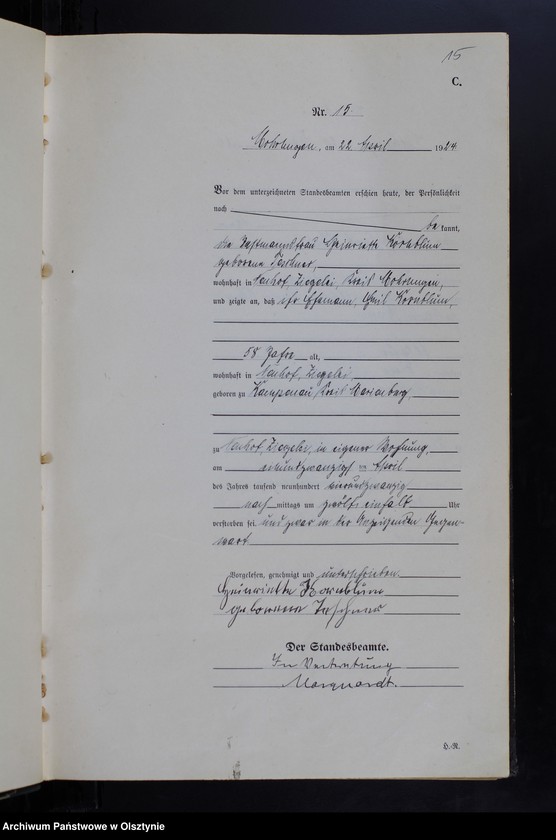 15
C.
Nr. 15
Mohrungen, am 22 April 1924
Vor dem unterzeichneten Standesbeamten erschien heute, der Persönlichkeit
nach
be kannt,
die Henriette Kornblum
geborene
wohnhaft in Neuhof, Ziegelei, Kreis Mohrungen,
und zeigte an, daß ihr Ehemann, Emil Kornblum,
58 Jahre alt,
wohnhaft in Neuhof, Ziegelei
geboren zu Kampenau Kreis Marienburg
zu Neuhof, Ziegelei, in eigener Wohnung,
am April
des Jahres tausend neunhundert vierundzwanzig
nach mittags um zwölf einhalb Uhr
verstorben sei und zwar in der Anzeigenden Gegen-
wart
Vorgelesen, genehmigt und unterschrieben.
Heinriette Kornblum
geborene
Der Standesbeamte.
In Vertretung
Marquardt.
H.-R.
Archiwum Państwowe w Olsztynie